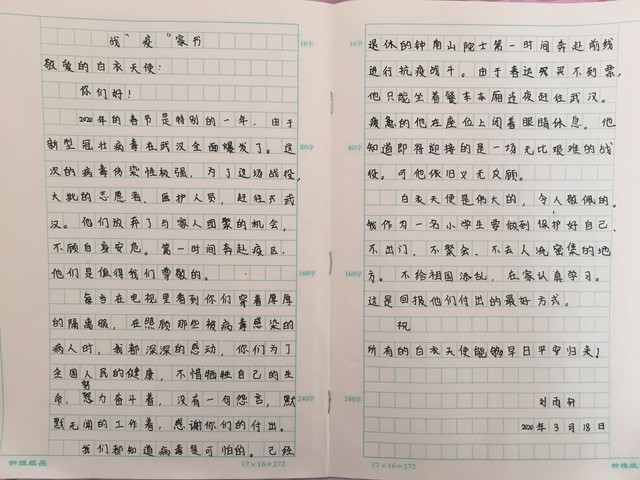 战“疫”家书
敬爱的白衣天使:
你们好!
2020年的春节是特别的一年,由于
新型冠壮病毒在武汉全面爆发了。这
次的病毒传染性极强,为了这场战役,
大批的志愿者、医护人员,赶往大武
汉。他们放弃了与家人团聚的机会,
不顾自身安危。第一时间奔赴疫区,
他们是值得我们尊敬的。
每当在电视里看到你们穿着厚厚
的隔离服,在照顾那些被病毒感染的
病人时,我都深深的感动,你们为了
全国人民的健康,不惜牺牲自己的生
命,努力奋斗着,没有一句怨言,默
默无闻的工作着,感谢你们的付出。
我们都知道病毒是可怕的。已经
16字
80字
160字
240字
钟雄纸品
17×16=272
退休的钟南山院士第一时间奔赴前线
进行抗疫战斗。由于春运买不到票,
他只能坐着餐车车厢连夜赶往武汉。
疲惫的他在座位上闭着眼睛休息。他
知道即将迎接的是一场无比艰难的战
役。可他依旧义无反顾。
白衣天使是伟大的,令人敬佩的。
我作为一名小学生要做到保护好自己、
不出门、不聚会、不去人流密集的地
方。不给祖国添乱,在家认真学习。
这是回报他们付出的最好方式。
祝
所有的白衣天使能够早日平安归来!
刘雨轩
2020年3月18日
16字
80字
160字
240字
17×16=272
钟雄纸